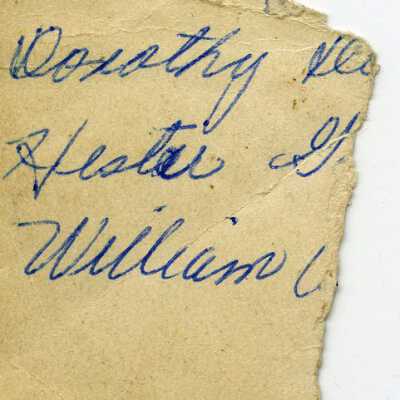 Dorothy
Hester G
William